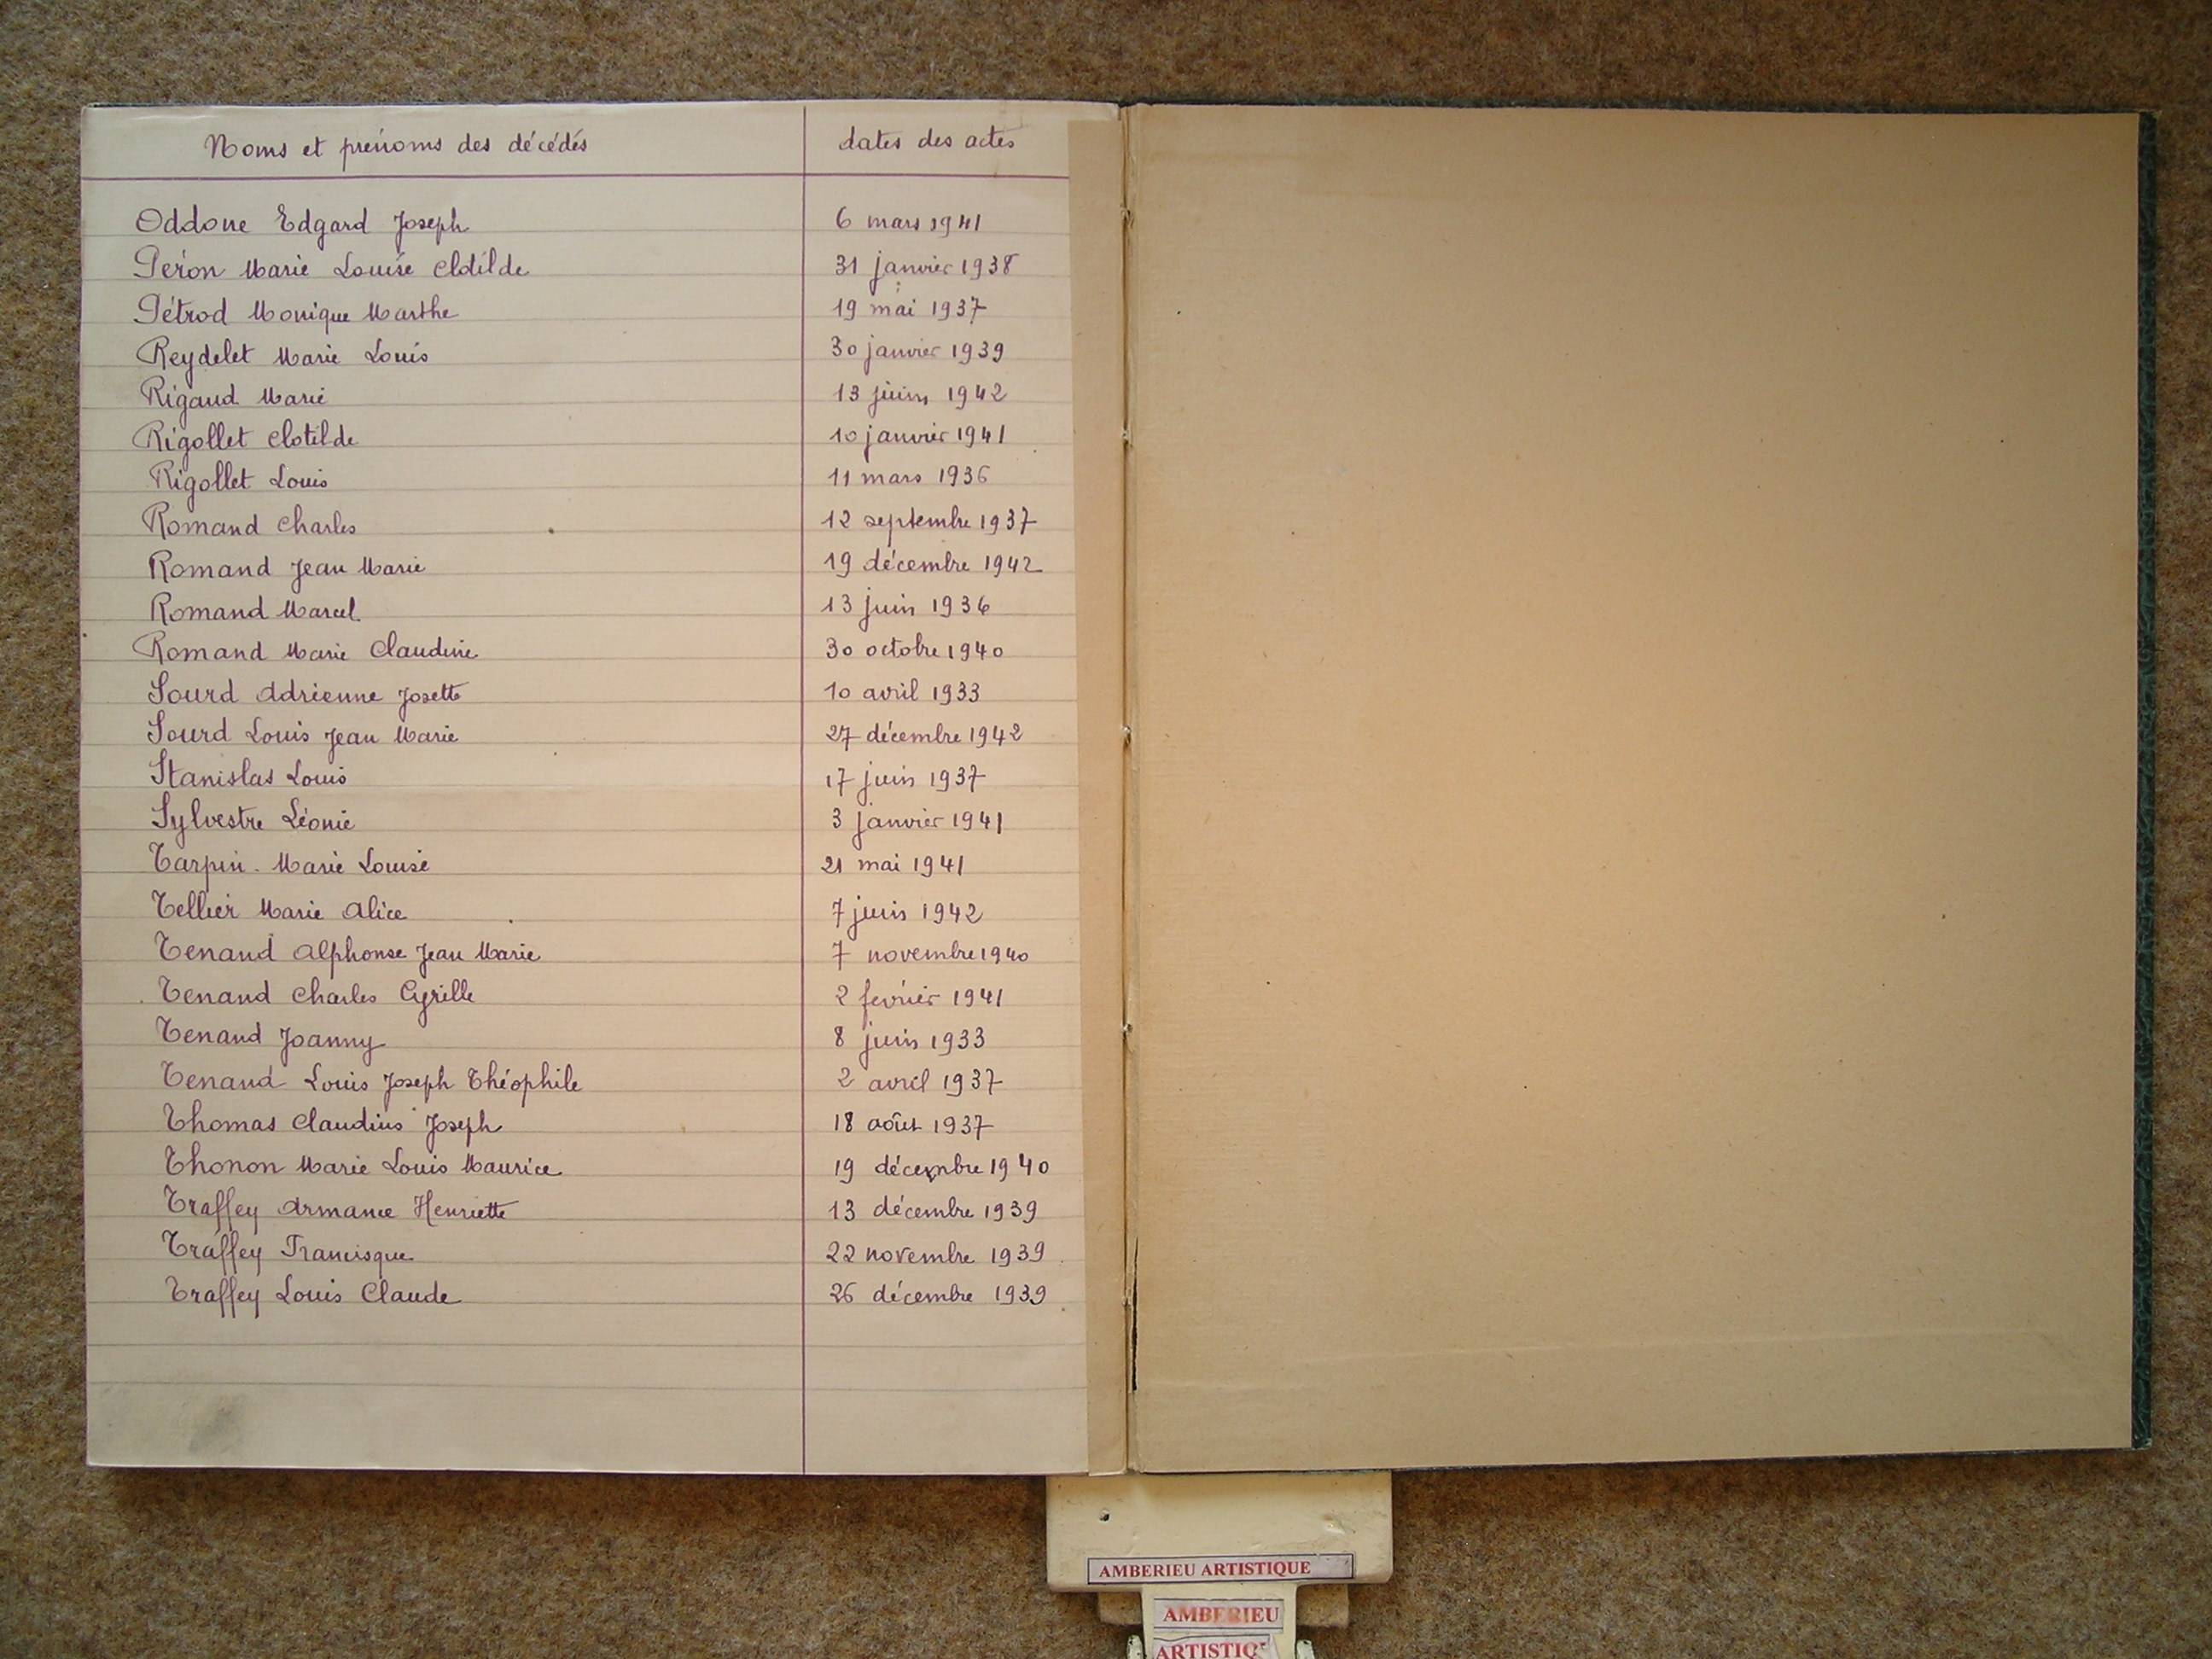 Noms et prénoms des décédés dates des actes
Oddone Edgard Joseph 6 mars 1941
Péron Marie Louise Clotilde 31 janvier 1938
Pétrod Monique Marthe 19 mai 1937
Reydelet Marie Louis 30 janvier 1939
Rigaud Marie 13 juin 1942
Rigollet Clotilde 10 janvier 1941
Rigollet Louis 11 mars 1936
Romand Charles 12 septembre 1937
Romand Jean Marie 19 décembre 1942
Romand Marcel 13 juin 1936
Romand Marie Claudine 30 octobre 1940
Sourd Adrienne Josette 10 avril 1933
Sourd Louis Jean Marie 27 décembre 1942
Stanislas Louis 17 juin 1937
Sylvestre Léonie 3 janvier 1941
Tarpin Marie Louise 21 mai 1941
Tellier Marie Alice 7 juin 1942
Tenand Alphonse Jean Marie 7 novembre 1940
Tenand Charles Cyrille 2 février 1941
Tenand Joanny 8 juin 1933
Tenand Louis Joseph Théophile 2 avril 1937
Thomas Claudius Joseph 18 août 1937
Thonon Marie Louis Maurice 19 décembre 1940
Traffey Armance Henriette 13 décembre 1939
Traffey Francisque 22 novembre 1939
Traffey Louis Claude 26 décembre 1939
AMBERIEU ARTISTIQUE
AMBERIEU
ARTISTIQ